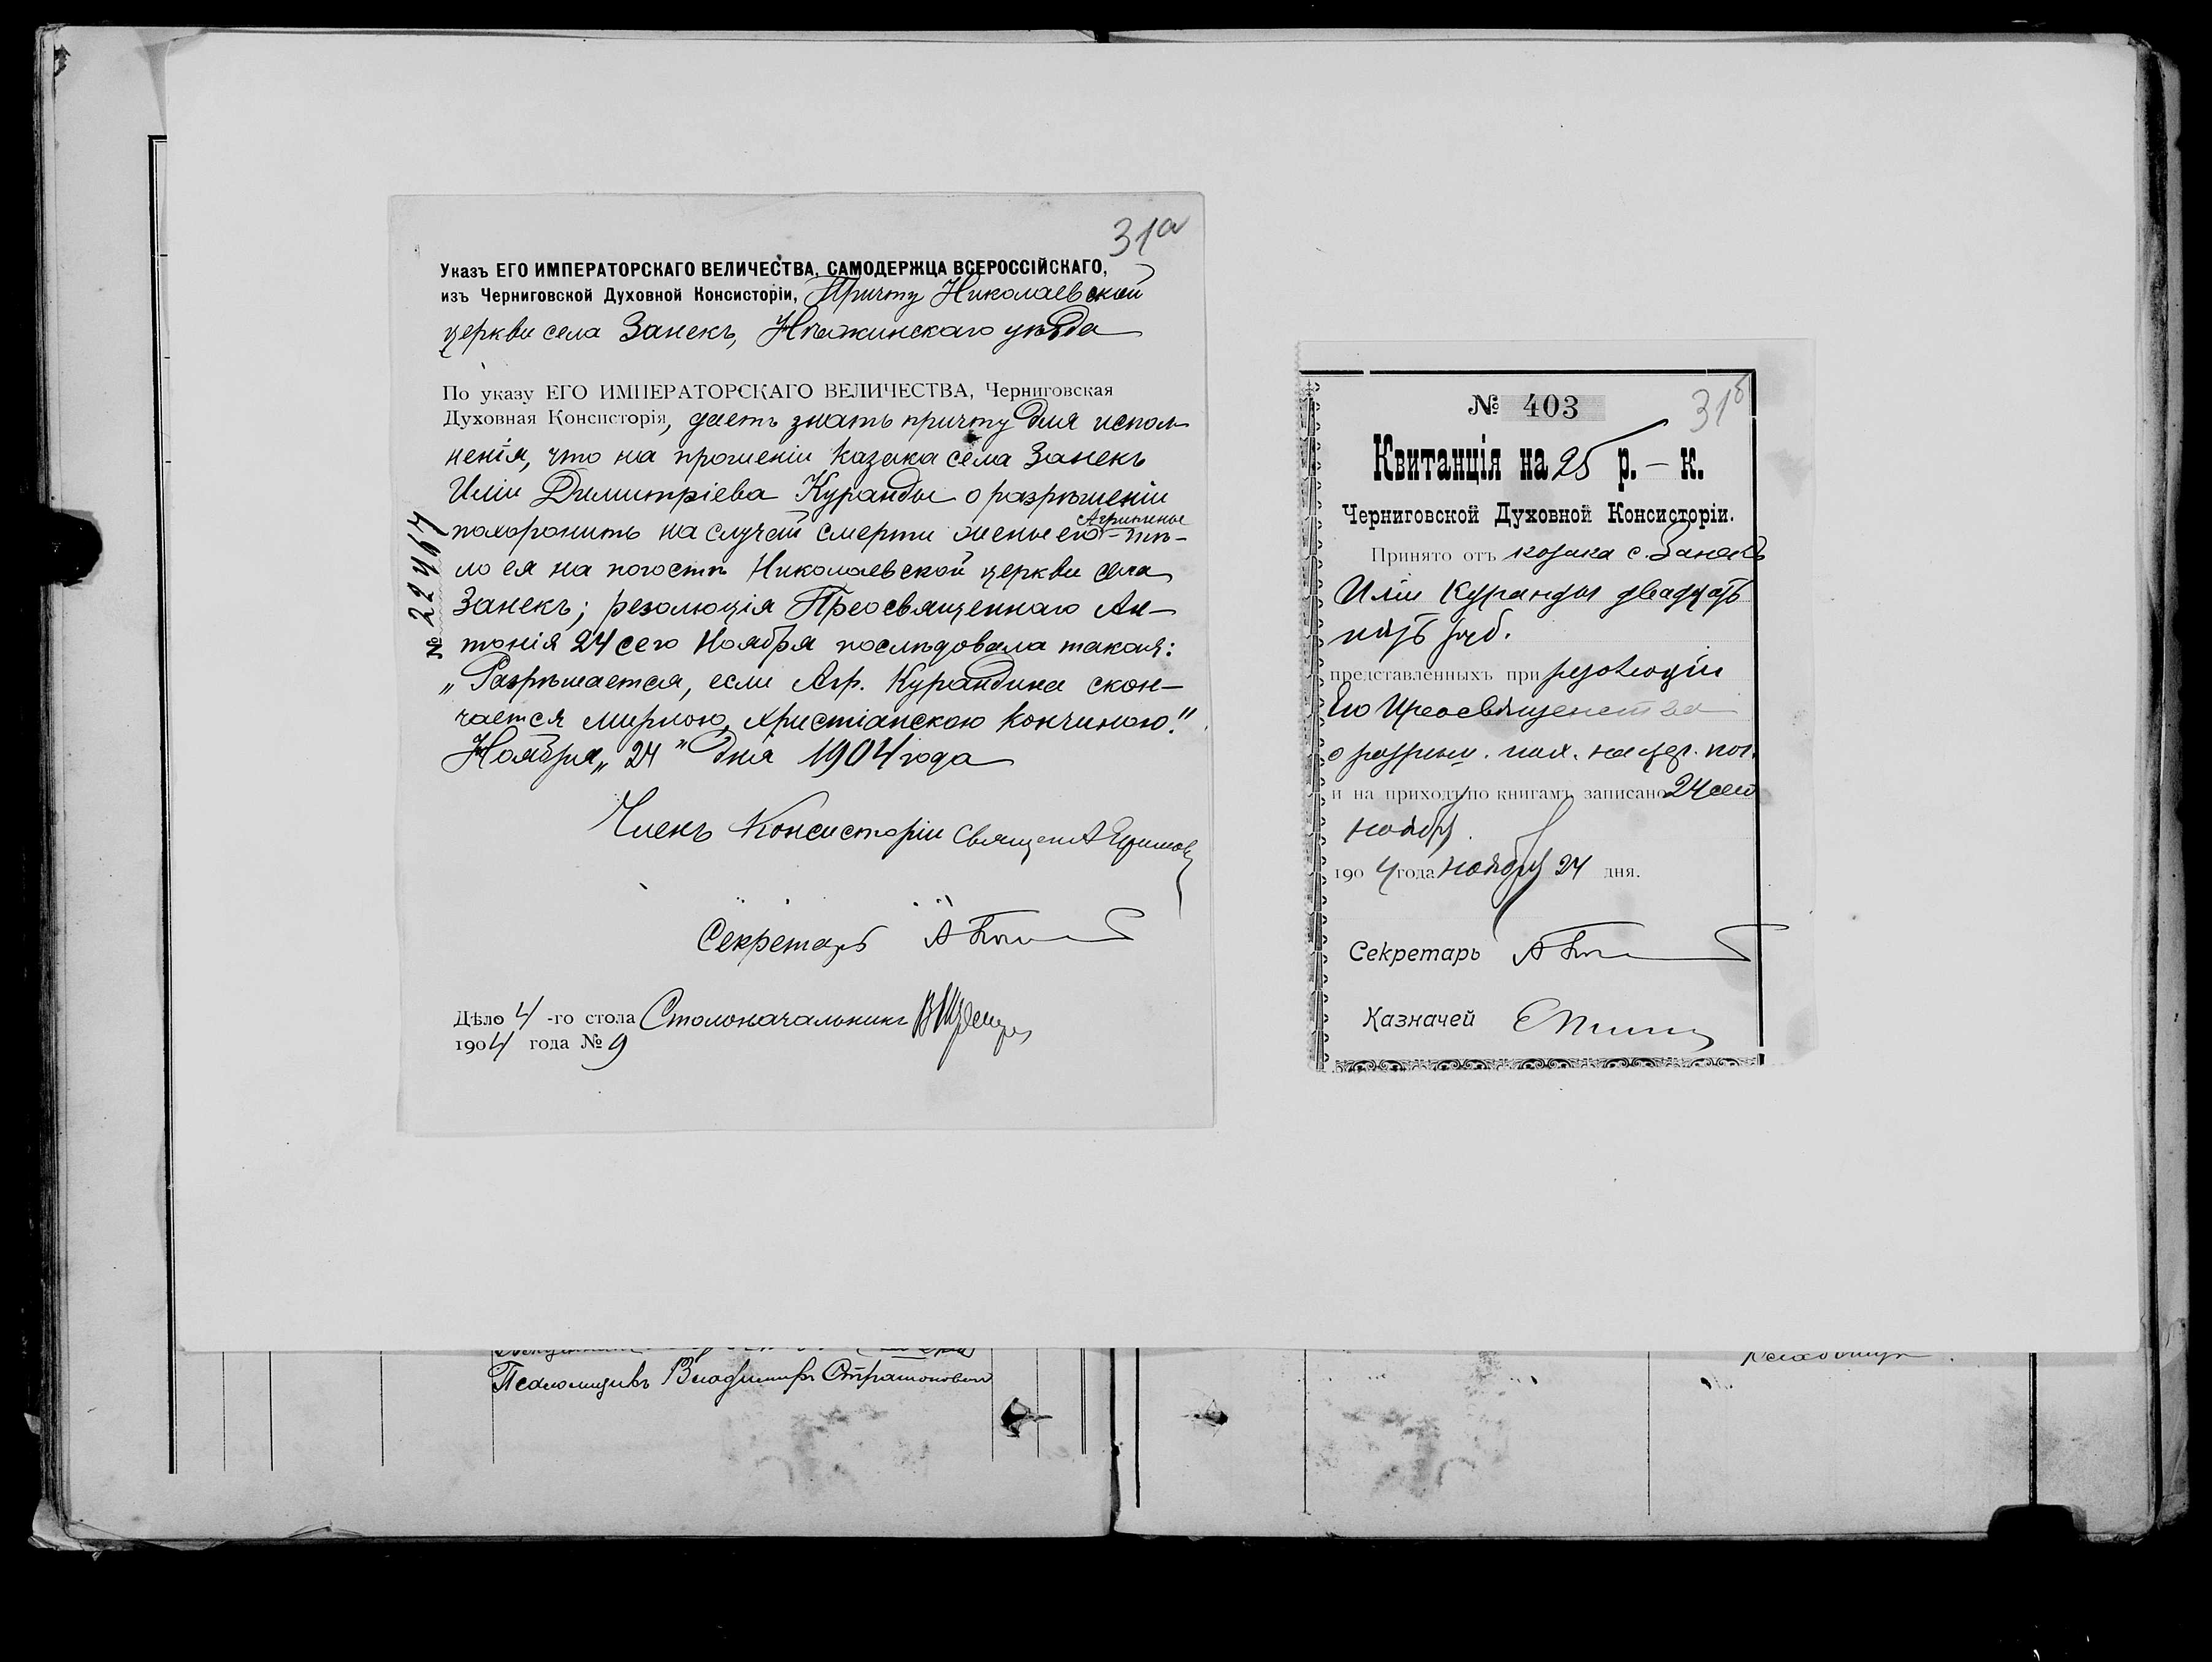 31а
Указъ ЕГО ИМПЕРАТОРСКАГО ВЕЛИЧЕСТВА, САМОДЕРЖЦА ВСЕРОССІЙСКАГО,
изъ Черниговской Духовной Консисторіи, Причту Николаевской
церкви села Занекъ, Нѣжинскаго уѣзда
По указу ЕГО ИМПЕРАТОРСКАГО ВЕЛИЧЕСТВА, Черниговская
Духовная Консисторія, даетъ знать причту для испол-
ненія, что на прошеніи казака села Занекъ
Иліи Димитріева Куранды о разрѣшеніи
похоронить на случай смерти жены его Агрипины тѣ-
ло ея на погостѣ Николаевской церкви села
Занекъ; резолюція Преосвященнаго Ан-
тонія 24 сего Ноября послѣдовала такая:
„Разрѣшается, если Агр. Курандина скон-
чается мирною, христіанскою кончиною."
Ноября „24" дня 1904 года
№ 22467
Членъ Консисторіи Священ. А Ефимовъ
Секретарь
Дѣло 4 -го стола Столоначальникъ
1904 года № 9
№ 403
31б
Квитанція на 25 р. — к.
Черниговской Духовной Консисторіи.
Принято отъ козака с. Занекъ
Иліи Куранды двадцать
пять руб.
представленныхъ при резолюціи
Его Преосвященства
о разрѣш. пох. на цер. пог.
и на приходъ по книгамъ записано 24 сего
ноября.
1904 года ноября 24 дня.
Секретарь
Казначей
Псаломщикъ Владимиръ Стратоновичъ